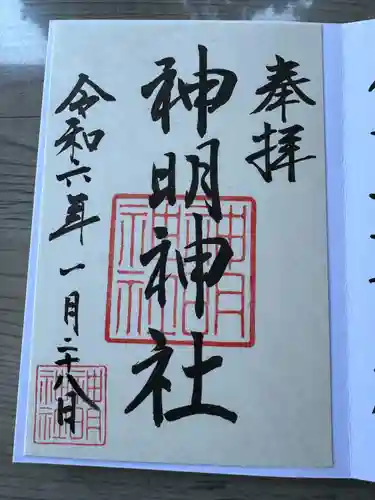 奉拝
神明神社
令和六年一月二十八日
神明
神社